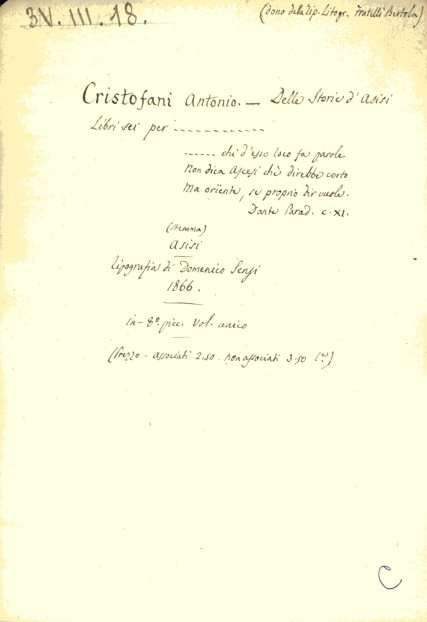 3N. III. 18. (dono della Tip. Litogr. Fratelli Bertola)
Cristofani Antonio. — Delle Storie d'Asisi
Libri sei per ------------
------ chi d'esso loco fa parole
Non dica Ascesi chè direbbe corto
Ma oriente, se proprio dir vuole.
Dante Parad. c. XI.
(stemma)
Asisi
tipografia di Domenico Sensi
1866.
in-8º. picc. Vol. unico
(Prezzo - associati 2.50 - non associati 3.50
C